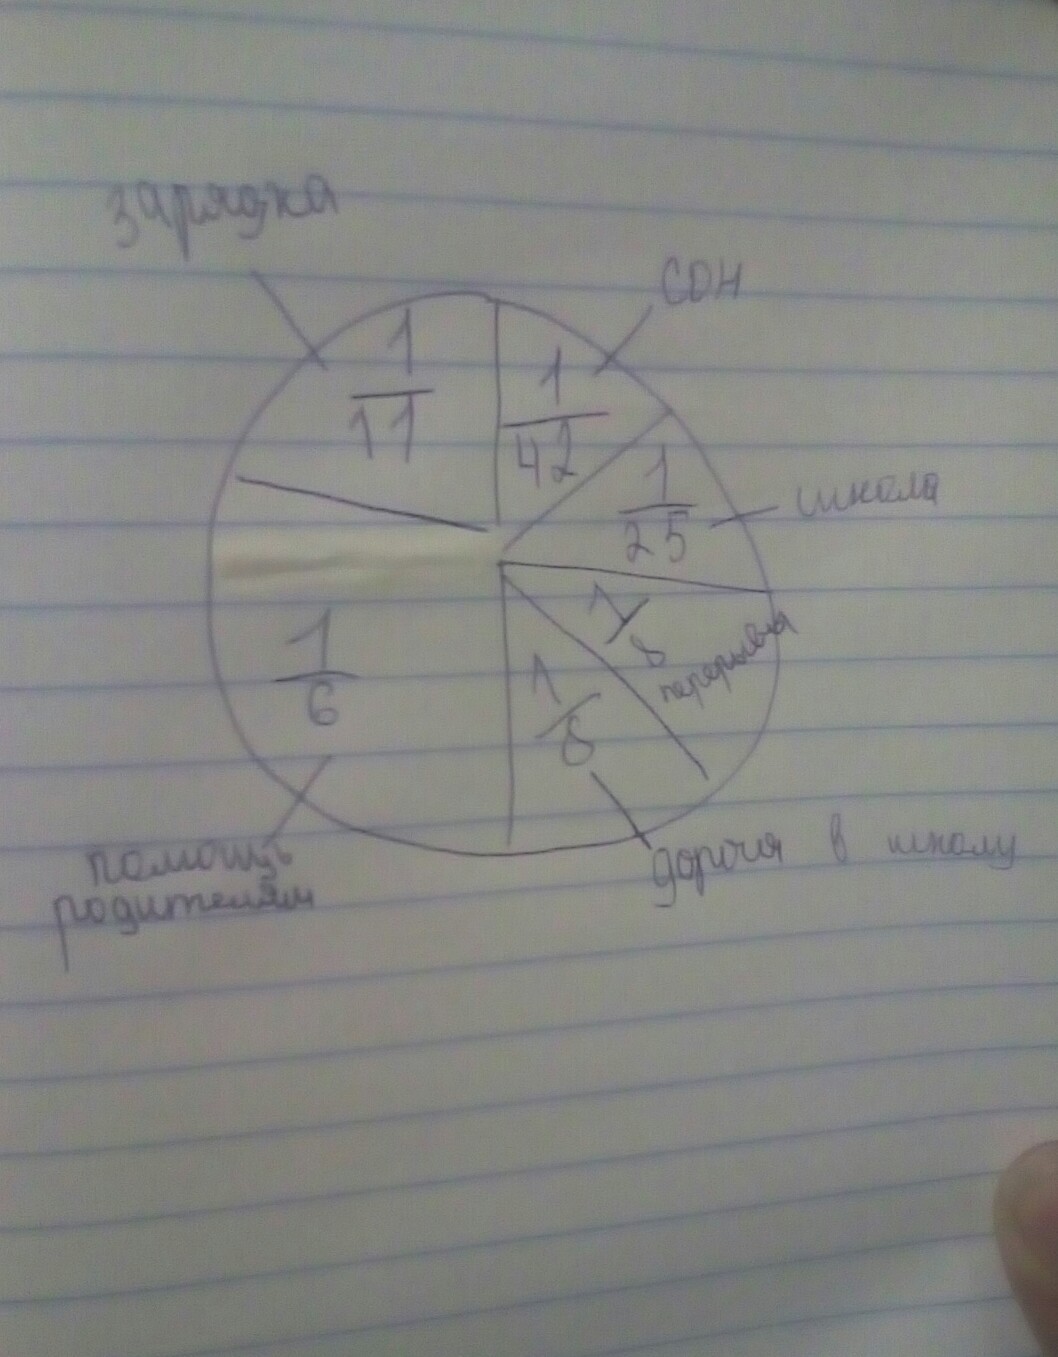 зарядка
сон
1
11
1
42
1
25
школа
1
8
перерывы
1
6
1
8
помощь
родителям
дорога в школу